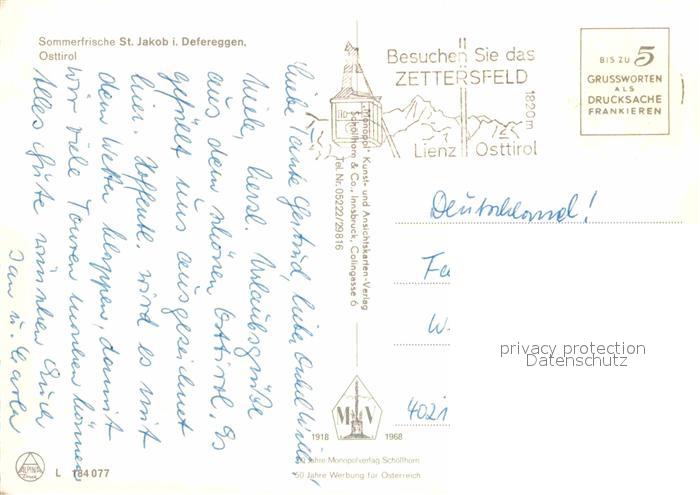 Sommerfrische St. Jakob i. Defereggen,
Osttirol
Liebe Tante Gertrud, lieber Onkel Willi,
viele, herzl. Urlaubsgrüße
aus dem schönen Osttirol. Es
gefällt uns ausgezeichnet
hier. Hoffentl. wird es mit
dem Wetter klappen, damit
wir viele Touren machen können.
Alles Gute wünschen Euch
u.
"Monopol" Kunst- und Ansichtskarten-Verlag
Schöllhorn & Co., Innsbruck, Colingasse 6
Tel. Nr. 05222/29816
Besuchen Sie das
ZETTERSFELD
1820m
Lienz Osttirol
BIS ZU 5
GRUSSWORTEN
ALS
DRUCKSACHE
FRANKIEREN
Deutschland!
Fa
W.
4021
privacy protection
Datenschutz
M V
1918 1968
50 Jahre Monopolverlag Schöllhorn
50 Jahre Werbung für Österreich
ALPINA
Druck
L 184077